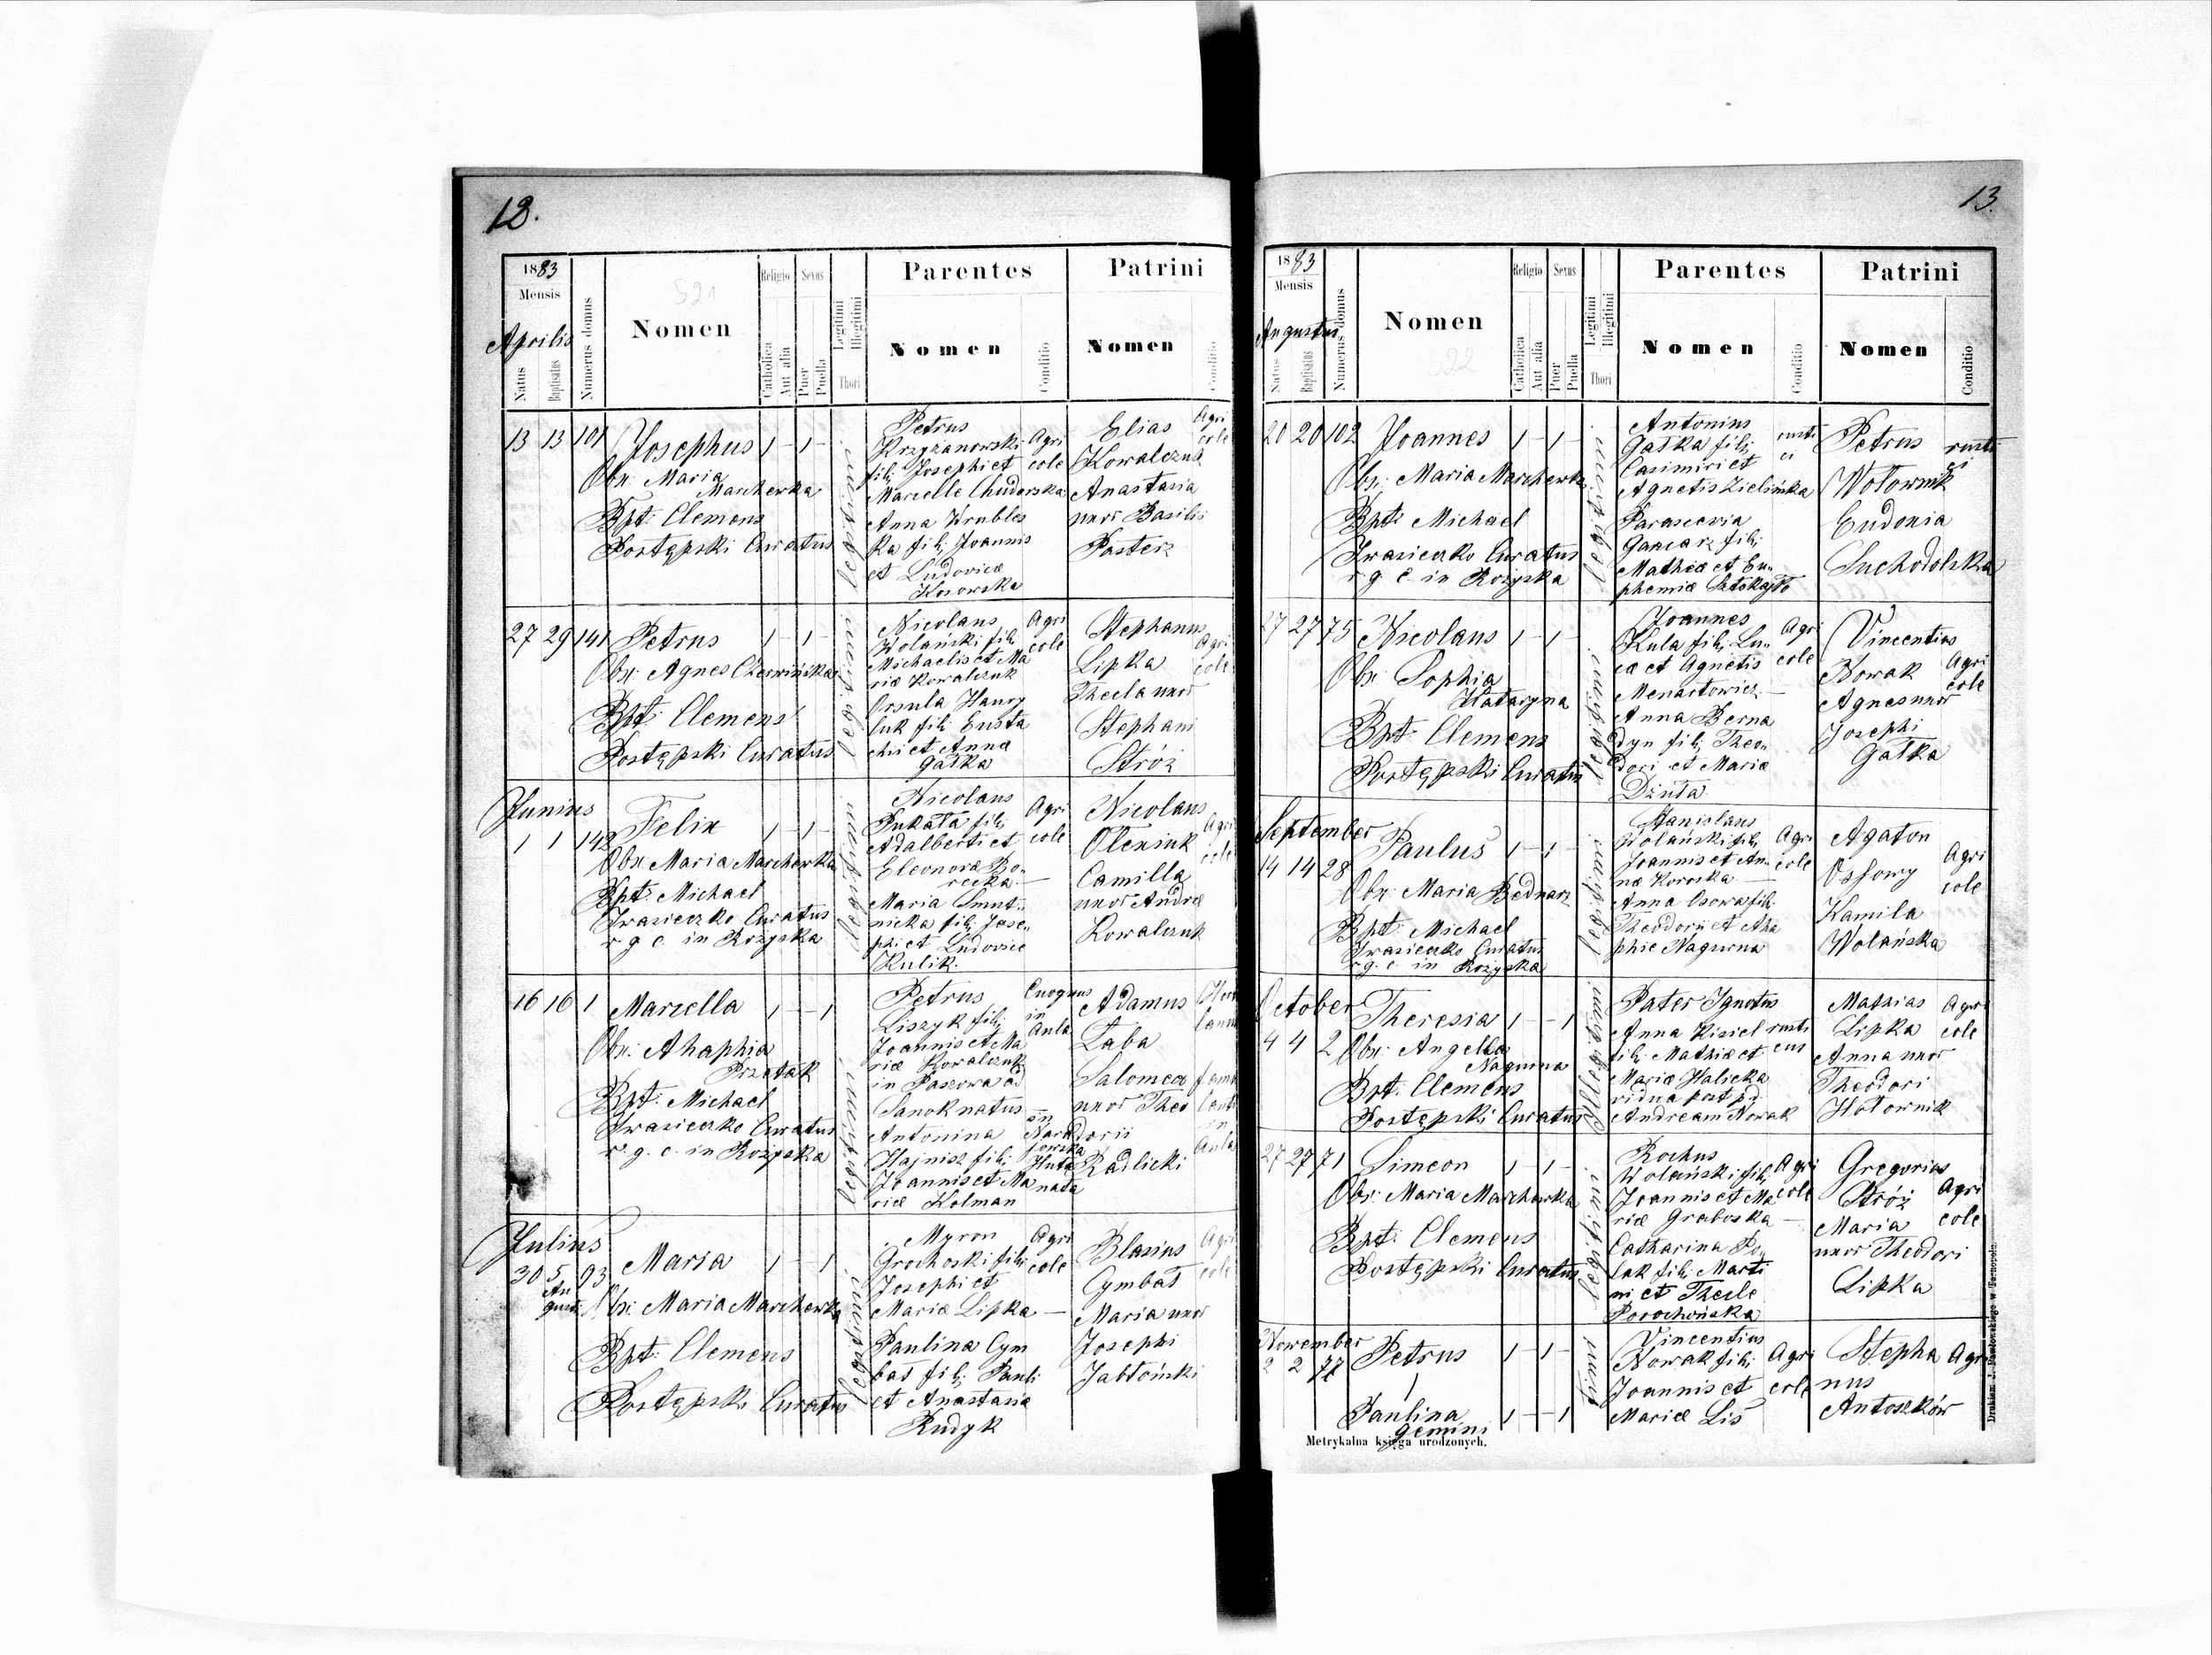 12.
1883
Mensis
Aprilis
Natus
Baptisatus
Numerus domus
Nomen
Religio
Catholica
Aut alia
Sexus
Puer
Puella
Legitimi
Illegitimi
Thori
Parentes
Nomen
Conditio
Patrini
Nomen
Conditio
521
13 13 101
Josephus 1 - 1 -
Obx: Maria
Marcherka
Bpt: Clemens
Postępski Curatus
legitimi
Petrus
Krzyżanowski
filj Josephi et
Marcelle Chudorska
Anna Wrubles
ka filj Joannis
et Ludovicæ
Kosowska
Agri
cole
Elias
Kowalczuk
Anastasia
uxor Basilii
Pasterz
Agri
cole
27 29 141
Petrus 1 - 1 -
Obx: Agnes Cherwińska
Bpt: Clemens
Postępski Curatus
legitimi
Nicolaus
Wolański filj
Michaelis et Ma
riæ Kowalczuk
Ursula Hawry
luk filj Eusta
chii et Annæ
Gałka
Agri
cole
Stephanus
Lipka
Thecla uxor
Stephani
Stróż
Agri
cole
Junius
1 1 142
Felix 1 - 1 -
Obx: Maria Marcherka
Bpt: Michael
Iwasieczko Curatus
r. g. c. in Rożyska
legitimi
Nicolaus
Pukała filj
Adalberti et
Eleonoræ Bo-
recka
Maria Smut-
nicka filj Jose-
phi et Ludovice
Kulik.
Agri
cole
Nicolaus
Oleniuk
Camilla
uxor Andræ
Kowalczuk
Agri
cole
16 16 1
Marcella 1 - - 1
Obx: Ahaphia
Przetak
Bpt: Michael
Iwasieczko Curatus
r. g. c. in Rożyska
legitimi
Petrus
Liszyk filj
Joannis et Ma
riæ Kowalczuk
in Paszowa ad
Sanok natus
Antonina
Hajnisz filj
Joannis et Ma
riæ Kolman
in
Aula
Adamus
Łaba
Salomea
uxor Theo
dorii
Radlicki
in
Aula
Julius
30 5 93
Au
gusti
Maria 1 - - 1
Obx: Maria Marcherka
Bpt: Clemens
Postępski Curatus
legitimi
Myron
Grochoski filj
Josephi et
Mariæ Lipka
Paulina Cym
bał filj Pauli
et Anastasiæ
Rudyk
Agri
cole
Blasius
Cymbał
Maria uxor
Josephi
Jabłoński
Agri
cole
13.
1883
Mensis
Augustus
Natus
Baptisatus
Numerus domus
Nomen
Religio
Catholica
Aut alia
Sexus
Puer
Puella
Legitimi
Illegitimi
Thori
Parentes
Nomen
Conditio
Patrini
Nomen
Conditio
522
20 20 102
Joannes 1 - 1 -
Obx: Maria Marcherka
Bpt: Michael
Iwasieczko Curatus
r. g. c. in Rożyska
legitimi
Antonius
Gałka filj
Casimiri et
Agnetis Zielińska
Parascevia
Gancarz filj
Mathiæ et Eu-
phemiæ
rusti
ci
Petrus
Wołownik
Eudonia
Suchodolska
rusti
ci
27 27 75
Nicolaus 1 - 1 -
Obx: Sophia
Kataryna
Bpt: Clemens
Postępski Curatus
legitimi
Joannes
Kula filj Lu-
cæ et Agnetis
Menartowicz
Anna Berna
dyn filj Theo-
dori et Mariæ
Dziuta
Agri
cole
Vincentius
Nowak
Agnes uxor
Josephi
Gałka
Agri
cole
September
14 14 28
Paulus 1 - 1 -
Obx: Maria Bednarz
Bpt: Michael
Iwasieczko Curatus
r. g. c. in Rożyska
legitimi
Stanislaus
Wolański filj
Joannis et An-
næ Koroska
Anna Osowa filj
Theodorii et Aha
phie Nagurna
Agri
cole
Agaton
Ossowy
Kamila
Wolańska
Agri
cole
October
4 4 2
Theresia 1 - - 1
Obx: Angella
Nagurna
Bpt: Clemens
Postępski Curatus
Illegitimi
Pater Ignotus
Anna Kisiel
filj Mathiæ et
Mariæ Halicka
vidua post pd
Andream Nowak
rusti
cus
Mathias
Lipka
Anna uxor
Theodori
Hołownik
Agri
cole
27 27 71
Simeon 1 - 1 -
Obx: Maria Marcherka
Bpt: Clemens
Postępski Curatus
legitimi
Rochus
Wolański filj
Joannis et Ma
riæ Graboska
Catharina Po
lak filj Marti
ni et Thecle
Porochońska
Agri
cole
Gregorius
Stróż
Maria
uxor Theodori
Lipka
Agri
cole
November
2 2 77
Petrus 1 - 1 -
Paulina 1 - - 1
gemini
Vincentius
Nowak filj
Joannis et
Mariæ Lis
Agri
cole
Stepha
nus
Antoszków
Agri
Metrykalna księga urodzonych.
Drukiem J. Pawłowskiego w Tarnopolu.